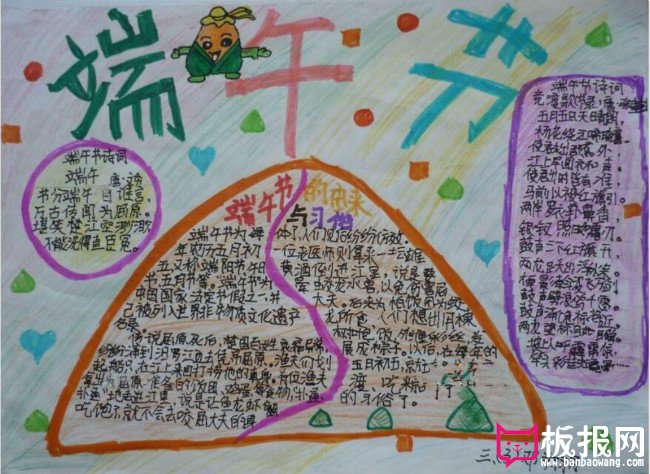 端午节
端午节诗词
端午 唐.文秀
节分端午自谁言,
万古传闻为屈原。
堪笑楚江空渺渺
不能洗得直臣冤。
端午节的由来
与习俗
端午节为每
年农历五月初
五又称端阳节.午日
节五月节等。端午节为
中国国家法定节假之一.并
已被列入世界非物质文化遗产
名录。
传说屈原死后,楚国百姓哀痛异常,
纷纷涌到汨罗江边去凭吊屈原。渔夫们划
起船只,在江上来回打捞他的真身。有位渔夫
拿出为屈原准备的饭团、鸡蛋等食物,“扑通、
扑通”地丢进江里,说是让鱼龙虾蟹
吃饱了,就不会去咬屈大夫的身
体了,人们见后纷纷仿效。
一位老医师则拿来一坛雄
黄酒倒进江里,说是要
药晕蛟龙水兽,以免伤害屈
大夫。后来为怕饭团为蛟
龙所食,人们想出用楝
树叶包饭,外缠彩丝,发
展成粽子。以后,在每年的
五月初五,就有了
吃粽子
的习俗了。
端午节诗词
竞渡歌
五月五日天晴明,
杨花绕江啼晓莺。
使君未出郡斋外,
江上早闻齐和声。
使君出时皆有准
马前已被红旗引。
两岸罗衣
银钗
鼓声三下红旗开,
两龙跃出浮水来。
鼓声劈浪
鼓声渐急标将近,
两龙望标目如瞬。
坡上
竿头彩挂
板报网
www.banbaowang.com